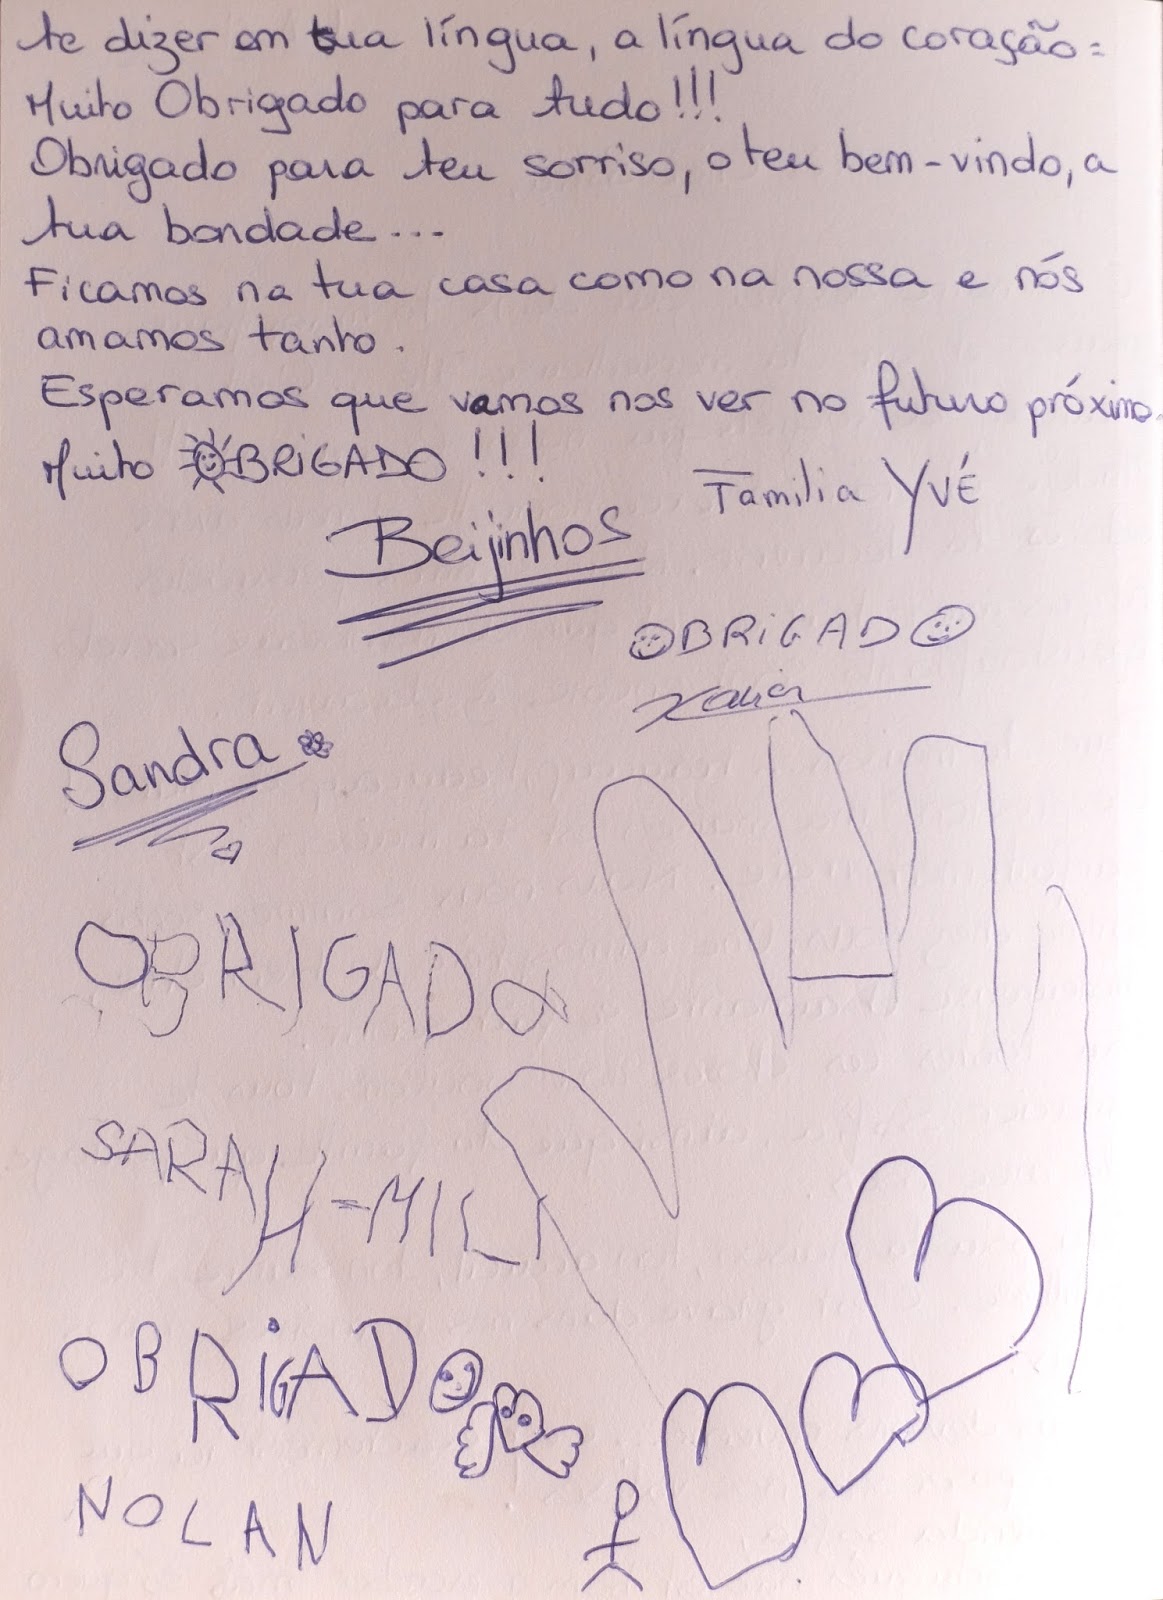 te dizer em tua língua, a língua do coração:
Muito Obrigado para tudo!!!
Obrigado para teu sorriso, o teu bem-vindo, a
tua bondade...
Ficamos na tua casa como na nossa e nós
amamos tanto.
Esperamos que vamos nos ver no futuro próximo.
Muito OBRIGADO !!!
Familia YVÉ
Beijinhos
OBRIGADO
Xavier
Sandra
OBRIGADO
SARAH-MILI
OBRIGADO
NOLAN